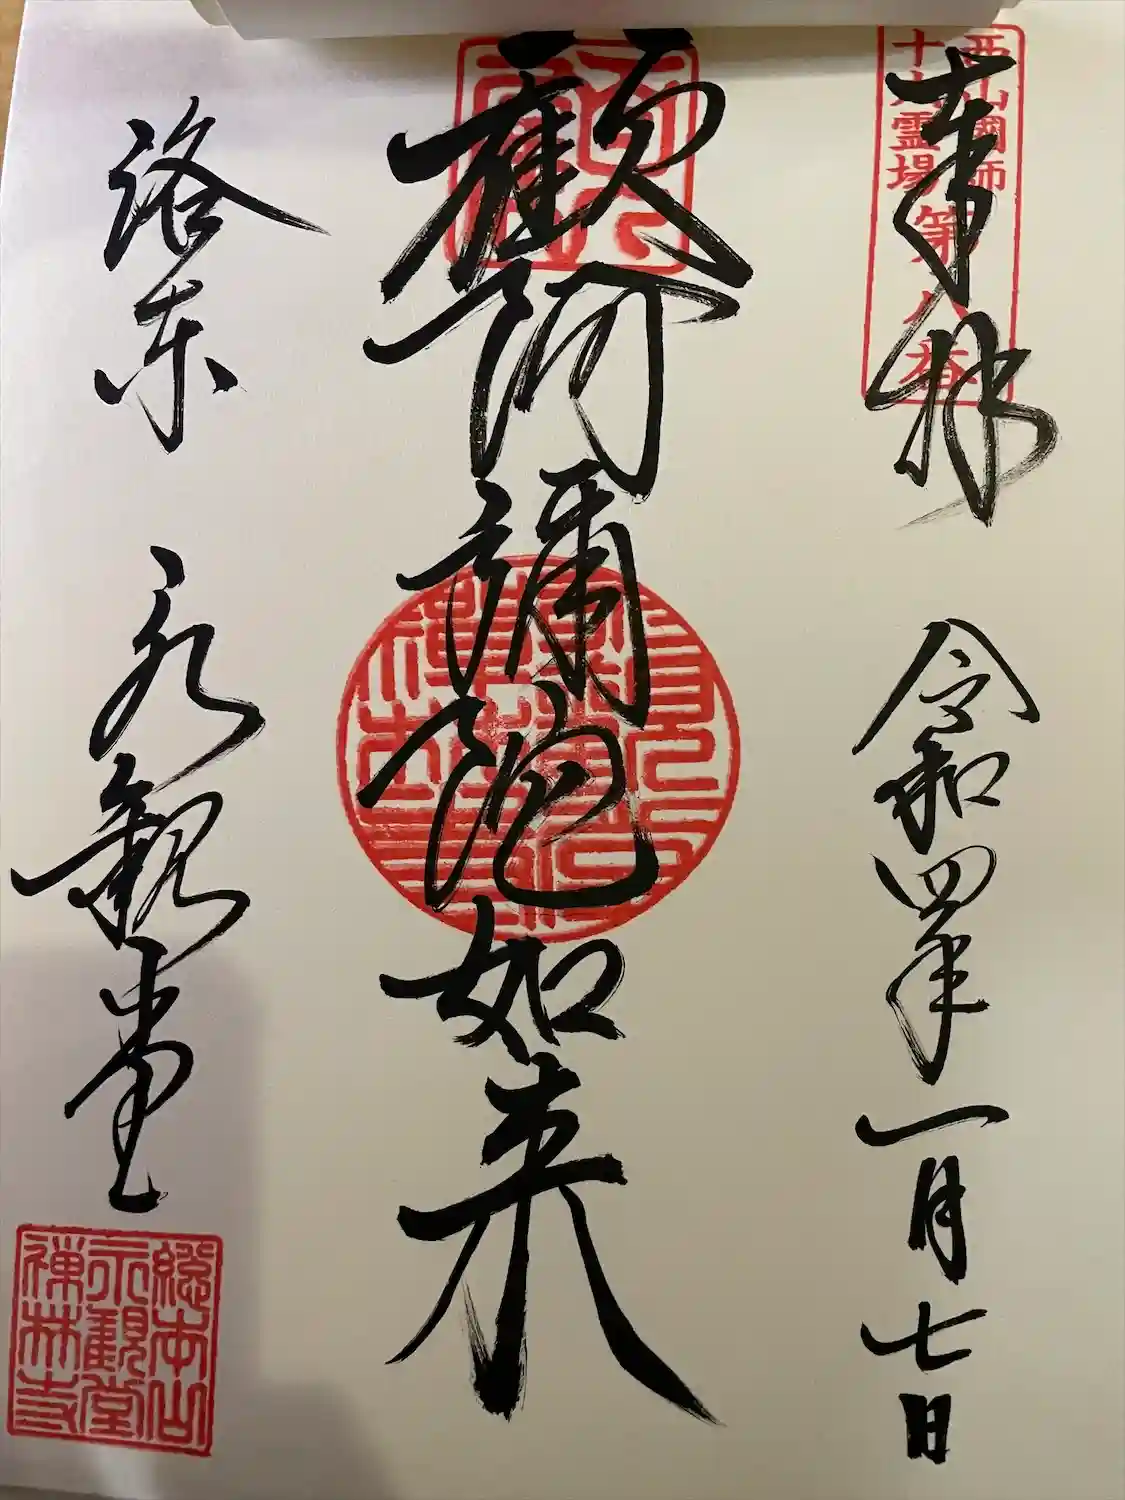 奉拝
令和四年一月七日
西山國師
十六霊場
第八番
顧阿彌陀如来
洛東
永観堂
總本山
永觀堂
禅林寺